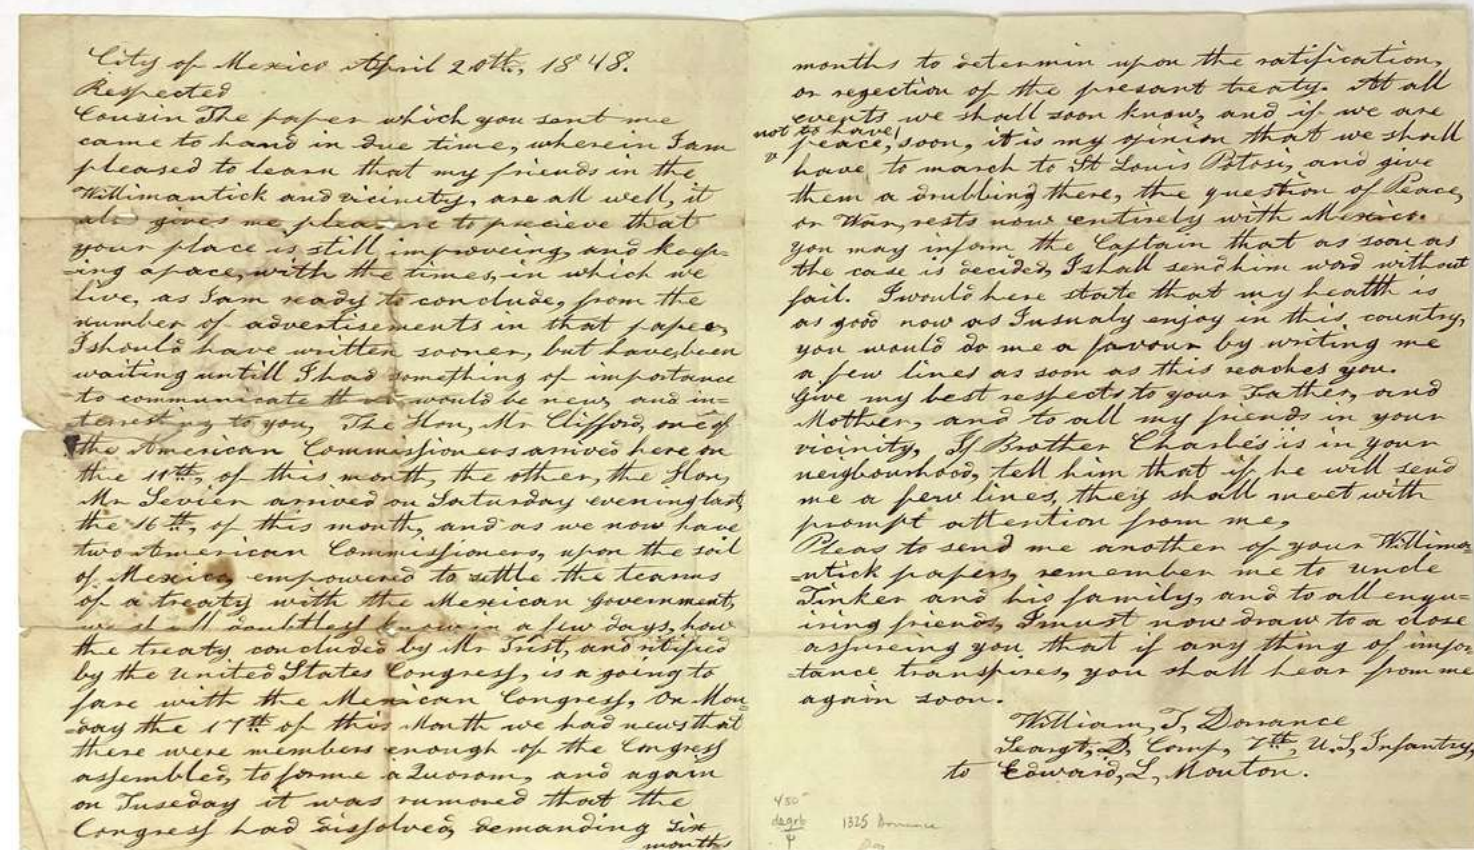 City of Mexico April 20th, 1848.
Respected
Cousin The paper which you sent me
came to hand in due time, wherein I am
pleased to learn that my friends in the
Willimantick and vicinity, are all well, it
also gives me pleasure to precieve that
your place is still improveing, and keep-
-ing apace, with the times, in which we
live, as I am ready to conclude, from the
number of advertisements in that paper,
I should have written sooner, but have been
waiting untill I had something of importance
to communicate that would be new, and in=
terresting to you, The Hon, Mr Clifford, one of
the American Commissioners arrived here on
the 11th, of this month, the other, the Hon,
Mr Sevier arrived on Saturday evening last,
the 16th, of this month, and as we now have
two American Commissioners, upon the soil
of Mexico, empowered to settle the tearms
of a treaty with the Mexican government,
we shall doubtless know in a few days, how
the treaty concluded by Mr Trist, and ritified
by the United States Congress, is a going to
fare with the Mexican Congress, On Mon=
=day the 17th of this Month we had news that
there were members enough of the Congress
assembled, to forme a Quorom, and again
on Tuseday it was rumored that the
Congress had dissolved, demanding six
months
months to determin upon the ratification,
or regection of the presant treaty. At all
events we shall soon know, and if we are
not to have
peace, soon, it is my opinion that we shall
have to march to St Louis Potosi, and give
them a drubbing there, the question of Peace,
or War, rests now entirely with Mexico.
You may inform the Captain that as soon as
the case is decided, I shall send him word without
fail. I would here state that my health is
as good now as I usualy enjoy in this country,
you would do me a favour by writing me
a few lines as soon as this reaches you.
Give my best respects to your Father, and
Mother, and to all my friends in your
vicinity, If Brother Charles is in your
neighbourhood, tell him that if he will send
me a few lines, they shall meet with
prompt attention from me,
Pleas to send me another of your Willima=
=ntick papers, remember me to uncle
Tinker and his family, and to all enqu=
iring friends, I must now draw to a close
assureing you, that if any thing of impor=
tance transpires, you shall hear from me
again soon.
William, T, Dorrance
Seargt, D, Comp, 7th, U.S, Infantry,
to Edward, L, Mouton.
450
1325 Dorrance